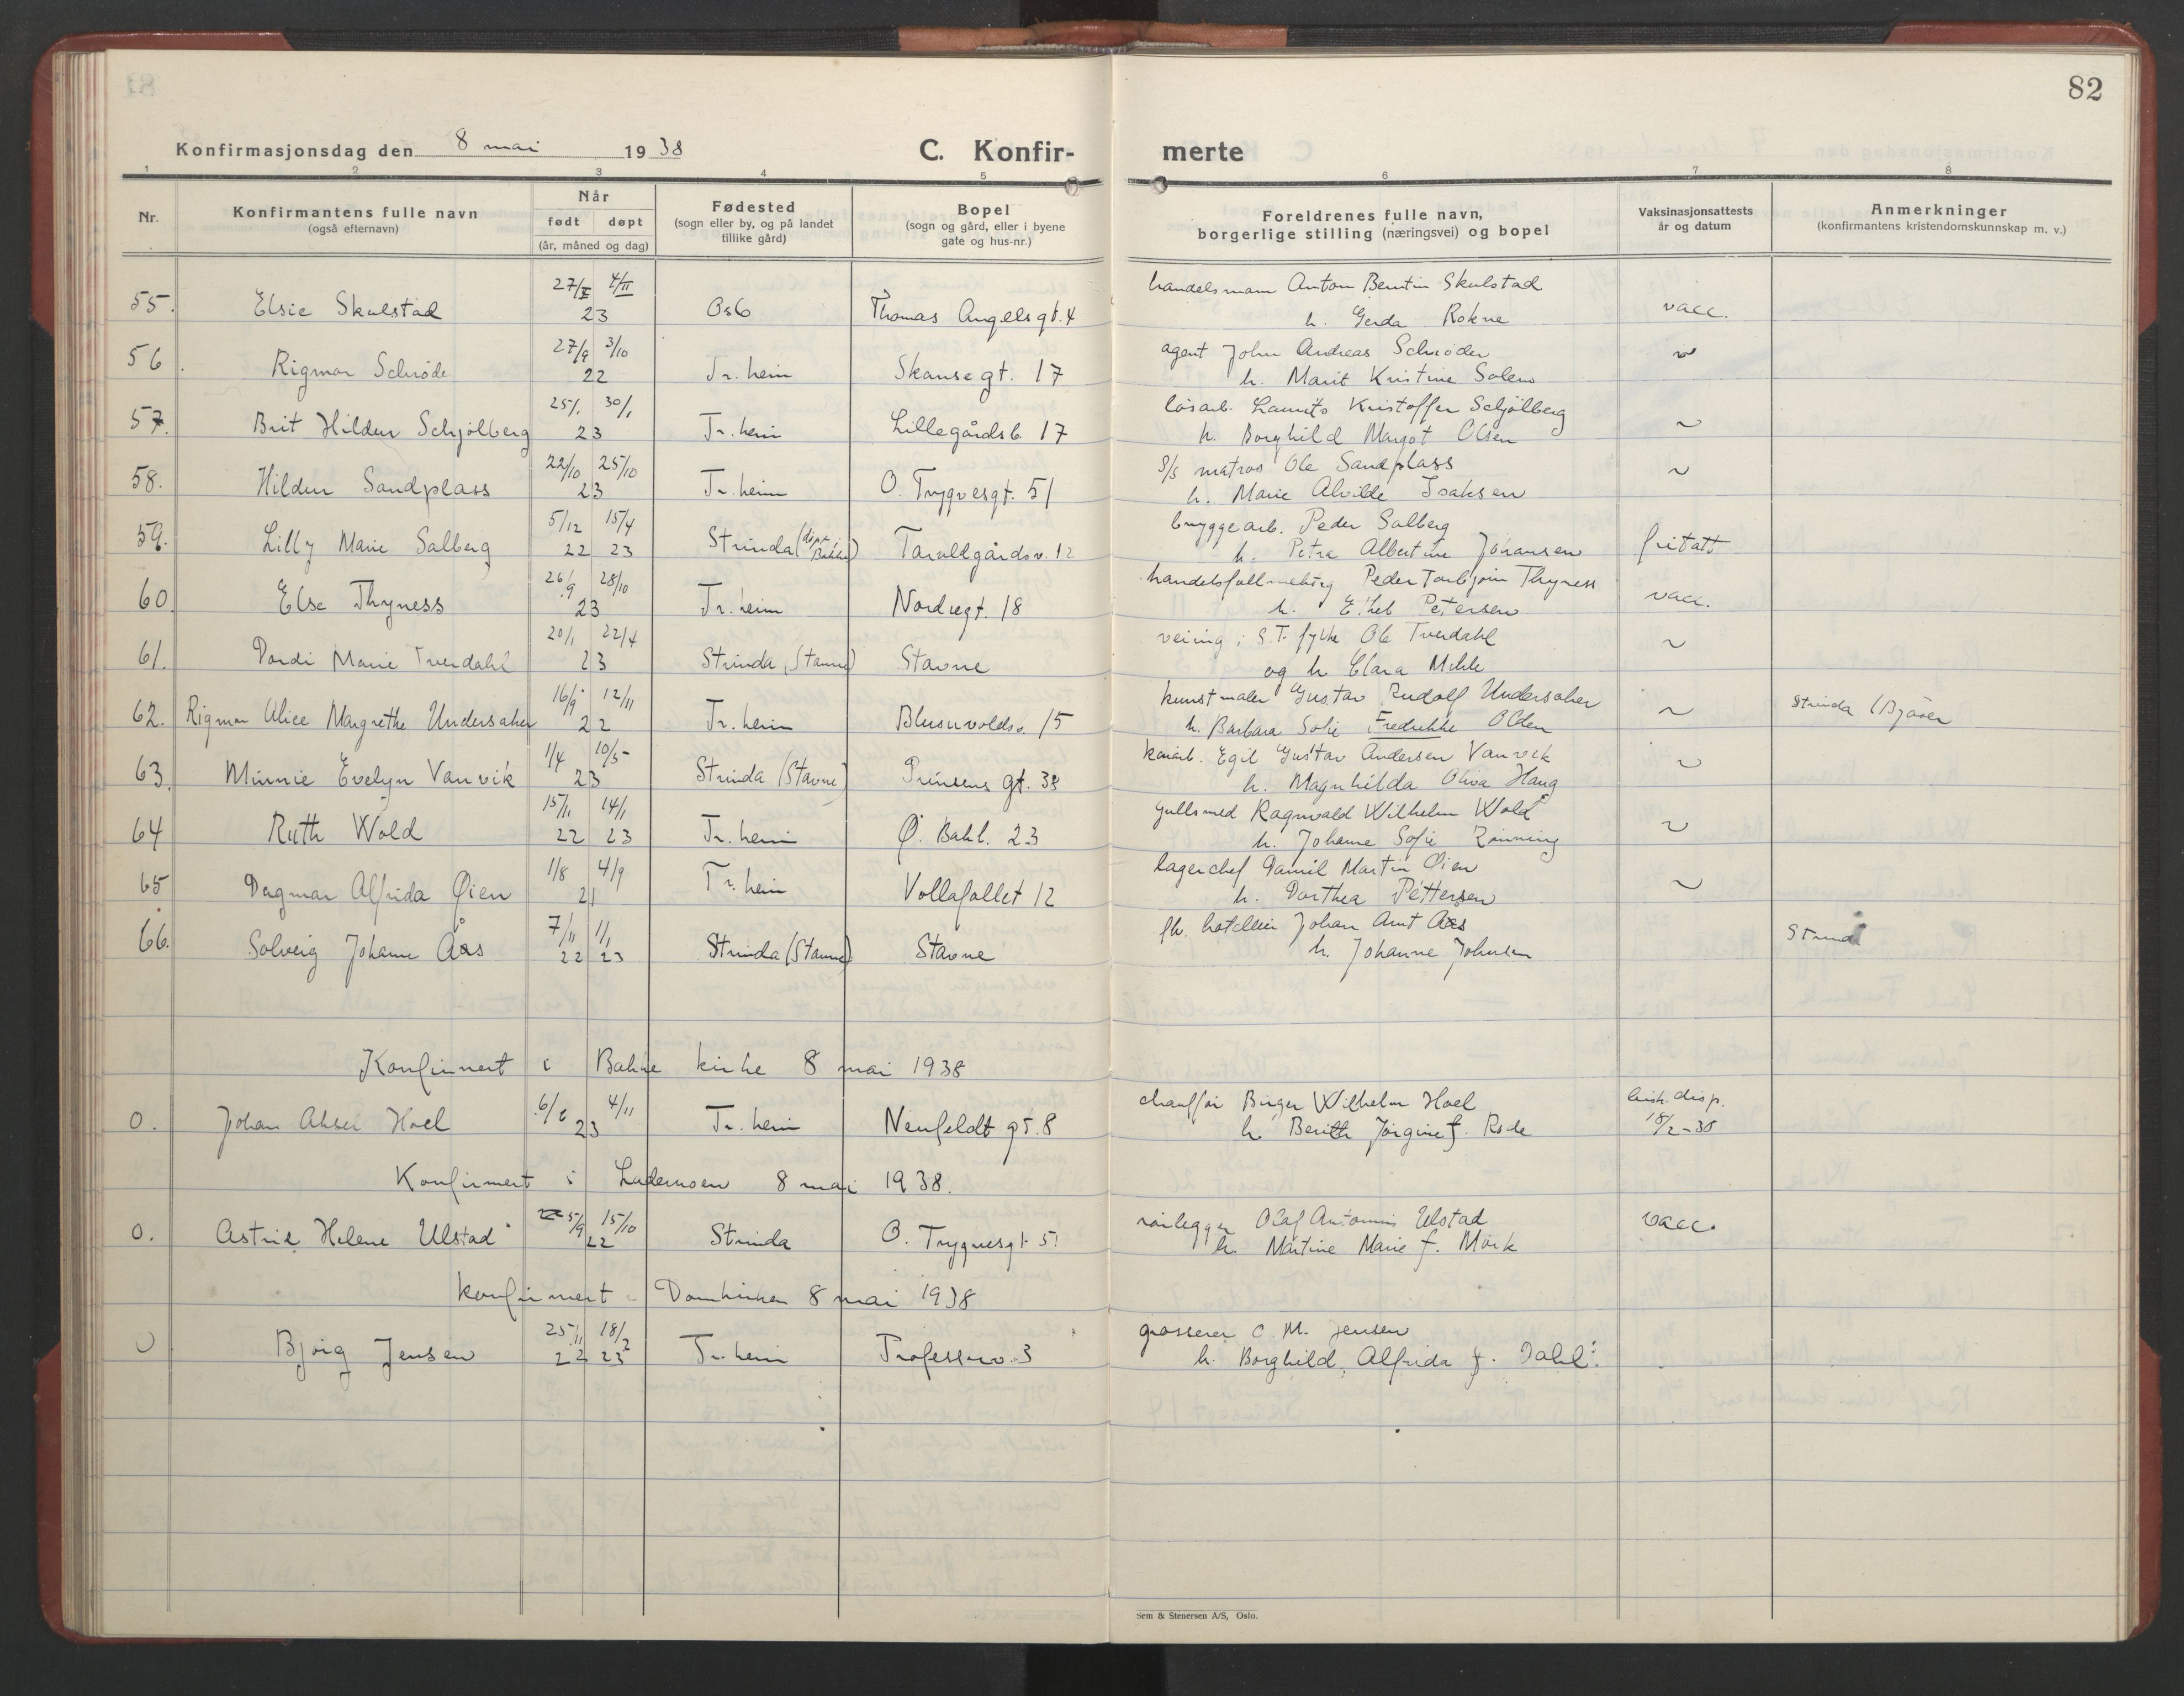 82
Konfirmasjonsdag den 8 mai 1938
C. Konfir- merte
1 2 3 4 5 6 7 8
Nr.
Konfirmantens fulle navn
(også efternavn)
Når
født døpt
(år, måned og dag)
Fødested
(sogn eller by, og på landet
tillike gård)
Bopel
(sogn og gård, eller i byene
gate og hus-nr.)
Foreldrenes fulle navn,
borgerlige stilling (næringsvei) og bopel
Vaksinasjonsattests
år og datum
Anmerkninger
(konfirmantens kristendomskunnskap m. v.)
27/I 4/II handelsmann Anton Berntin Skulstad
55. Elsie Skulstad 23 Oslo Thomas Angelsgt. 4 h. Gerda Rokne vacc.
27/9 3/10 agent John Andreas Schrøder
56. Rigmor Schrøde 22 Tr.heim Skansegt. 17 h. Marit Kristine Solem ~
25/1 30/1 løsarb. Laurits Kristoffer Schjølberg
57. Brit Hildur Schjølberg 23 Tr.heim Lillegårdsb. 17 h. Borghild Margot Olsen ~
22/10 25/10 s/s matros Ole Sandplass
58. Hildur Sandplass 23 Tr.heim O. Trygvesgt. 51 h. Marie Alvilde Isaksen ~
5/12 15/4 bryggearb. Peder Salberg
59. Lilly Marie Salberg 22 23 Strinda (døpt Bakke) Taraldgårdsv. 12 h. Petra Albertine Johansen fritatt
26/9 28/10 handelsfullmektig Peder Torbjørn Thyness
60. Else Thyness 23 Tr.heim Nordregt. 18 h. Ethel Petersen vacc.
20/1 22/4 veiing. i S.T. fylke Ole Tverdahl
61. Dordi Marie Tverdahl 23 Strinda (Stavne) Stavne og h. Clara Mikle ~
16/9 12/11 kunstmaler Gustav Rudolf Undersaker
62. Rigmor Alice Margrethe Undersaker 22 Tr.heim Blusuvoldsv. 15 h. Barbara Sofie Fredrikke Olden ~ Strinda (Bjåser
1/4 10/5 kaiarb. Egil Gustav Andersen Vanvik
63. Minnie Evelyn Vanvik 23 Strinda (Stavne) Prinsens gt. 38 h. Magnhilda Oliva Haug ~
15/11 14/1 Gullsmed Ragnvald Wilhelm Wold
64 Ruth Wold 22 23 Tr.heim Ø. Bakl. 23 h. Johanne Sofie Rønning ~
1/8 4/9 lagerchef Daniel Martin Øien
65 Dagmar Alfrida Øien 21 Tr.heim Vollafallet 12 h. Dorthea Pettersen ~
7/11 1/1 fh. hotelleier Johan Arnt Aas
66. Solveig Johanne Aas 22 23 Strinda (Stavne) Stavne h. Johanne Johnsen Strinda
Konfirmert i Bakke kirke 8 mai 1938
6/6 4/11 chauffør Birger Wilhelm Hoel
0. Johan Aksel Hoel 23 Tr.heim Neufeldt gt. 8 h. Berith Jørgine f. Rode 18/2-38
Konfirmert i Lademoen 8 mai 1938.
5/9 15/10 rørlegger Olaf Antonius Ulstad
0. Astrid Helene Ulstad 22 Strinda O. Trygvesgt. 51 h. Martine Marie f. Mørk vacc.
Konfirmert i Domkirken 8 mai 1938
25/11 18/2 grosserer C. M. Jensen
0 Bjørg Jensen 22 23 Tr.heim Professorv. 3 h. Borghild Alfrida f. Dahl.
Sem & Stenersen A/S, Oslo.